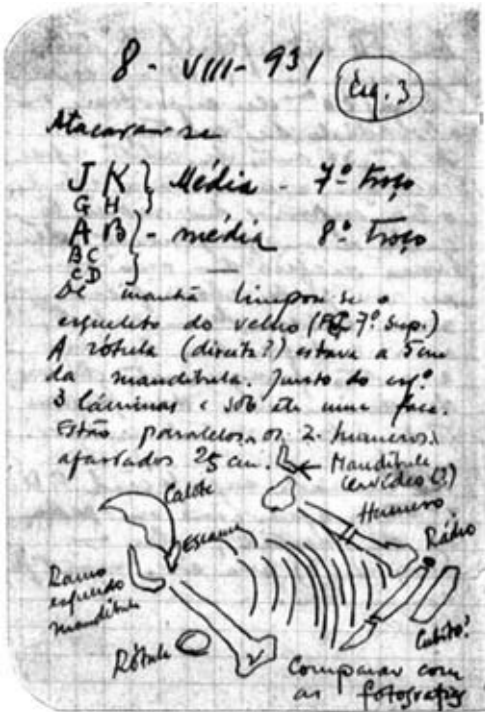 8 - VIII - 931
Esq. 3
Atacaram se
J K } Média - 7º troço
G H
A B } - média 8º troço
B C
C D
De manhã limpou-se o
esqueleto do velho ( 7º Sup.)
A rótula (direita?) estava a 5 cm
da mandibula. Junto do esq.º
3 láminas e sob ele uma faca.
Estão paralelos os 2 húmeros:
afastados 25 cm.
Mandibula
Cervídeo (?)
Calote
Húmero
Escama
Rádio
Ramo
esquerdo
mandibula
Rótula
Cúbito?
Comparar com
as fotografias